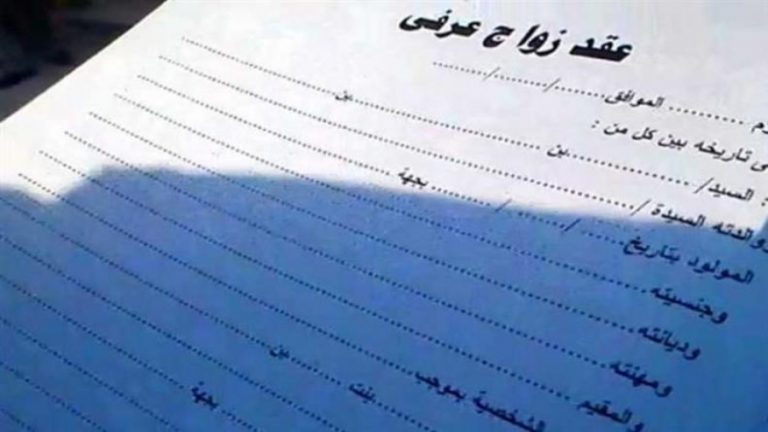 عقد زواج عرفى
.......... الموافق ........../........../..........
تاريخه بين كل من :
السيد/ .......... بن .......... بن ..........
والدته السيدة/ ..........
المولود بتاريخ ....../....../...... بجهة ..........
وجنسيته ..........
وديانته ..........
ومهنته ..........
والمقيم ..........
الشخصية بموجب ..........
بنت .......... بن ..........
بجهة ..........